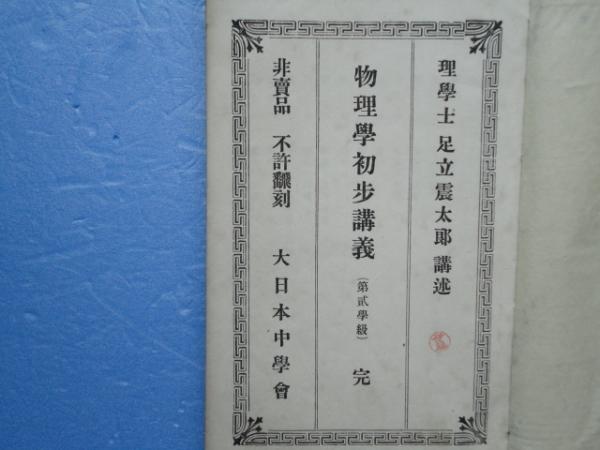 理學士 足立震太郎 講述
物理學初步講義 (第貳學級) 完
非賣品 不許飜刻 大日本中學會